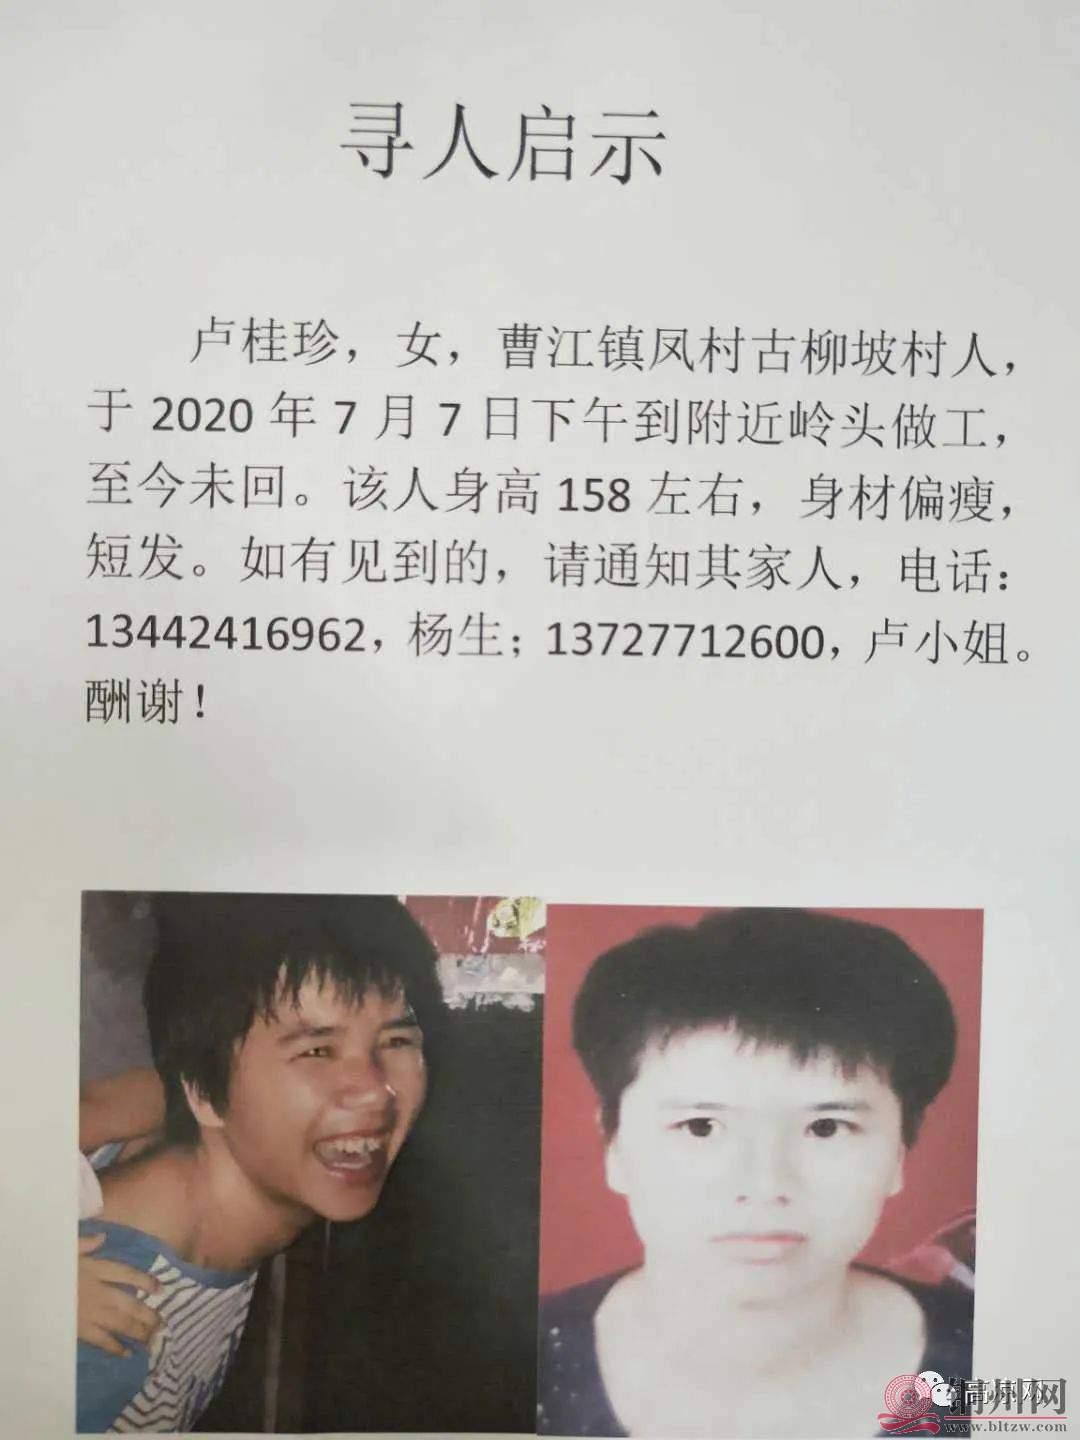 寻人启示
卢桂珍，女，曹江镇凤村古柳坡村人，
于 2020 年 7 月 7 日下午到附近岭头做工，
至今未回。该人身高 158 左右，身材偏瘦，
短发。如有见到的，请通知其家人，电话：
13442416962，杨生；13727712600，卢小姐。
酬谢！
州网
www.bltzw.com